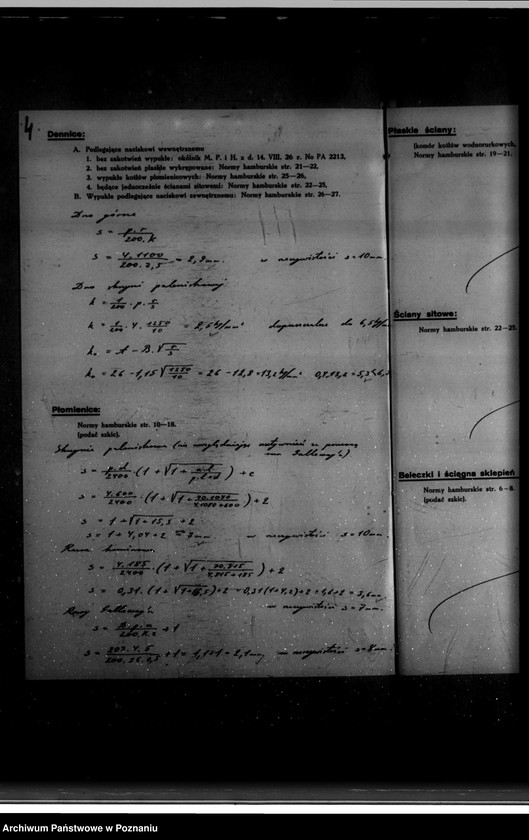 4.
Dennice:
A. Podlegające naciskowi wewnętrznemu
1. bez zakotwień wypukłe: okólnik M. P. i H. z d. 14. VIII. 26 r. No PA 2213,
2. bez zakotwień płaskie wykrępowane: Normy hamburskie str. 21—22,
3. wypukłe kotłów płomienicowych: Normy hamburskie str. 25—26,
4. będące jednocześnie ścianami sitowemi: Normy hamburskie str. 22—25,
B. Wypukłe podlegające naciskowi zewnętrznemu: Normy hamburskie str. 26—27.
Dno górne
s = p.r / 200.k
s = 4.1100 / 200.2,5 = 2,9 mm. w rzeczywistości s = 10 mm.
Dno skrzyni paleniskowej
k = 1/200 . p . r/s
k = 1/200 . 4 . 1250/10 = 2,5 kg/mm² do 6,5 kg/mm
k₀ = A − B.√r/s
k₀ = 26 − 1,15 √1250/10 = 26 − 12,8 = 13,2 kg/mm²
Płomienice:
Normy hamburskie str. 10—18.
(podać szkic).
Skrzynia paleniskowa (nie uwzględniając
s = p.d/2400 (1 + √1 + a.l/p.l+d) + c
s = 4.600/2400 . (1 + √1 +) + 2
s = 1 + √1 + 15,3 + 2
s = 1 + 4,04 + 2 = 7 mm. w rzeczywistości s = 10 mm.
Rura kominowa.
s = 4.185/2400 . (1 + √1 +) + 2
s = 0,31. (1 +) + 2 = 0,31 (1 + 4,2) + 2 = 1,6 + 2 = 3,6 mm
w rzeczywistości s = 7 mm.
Rury Galloway'a
+ 1
+ 1 = 1,1 + 1 = 2,1 mm, w rzeczywistości s = 8 mm.
Płaskie ściany:
(komór kotłów wodnorurkowych,
Normy hamburskie str. 19—21.
Ściany sitowe:
Normy hamburskie str. 22—25.
Beleczki i ściągna sklepień
Normy hamburskie str. 6—8.
(podać szkic).
Archiwum Państwowe w Poznaniu